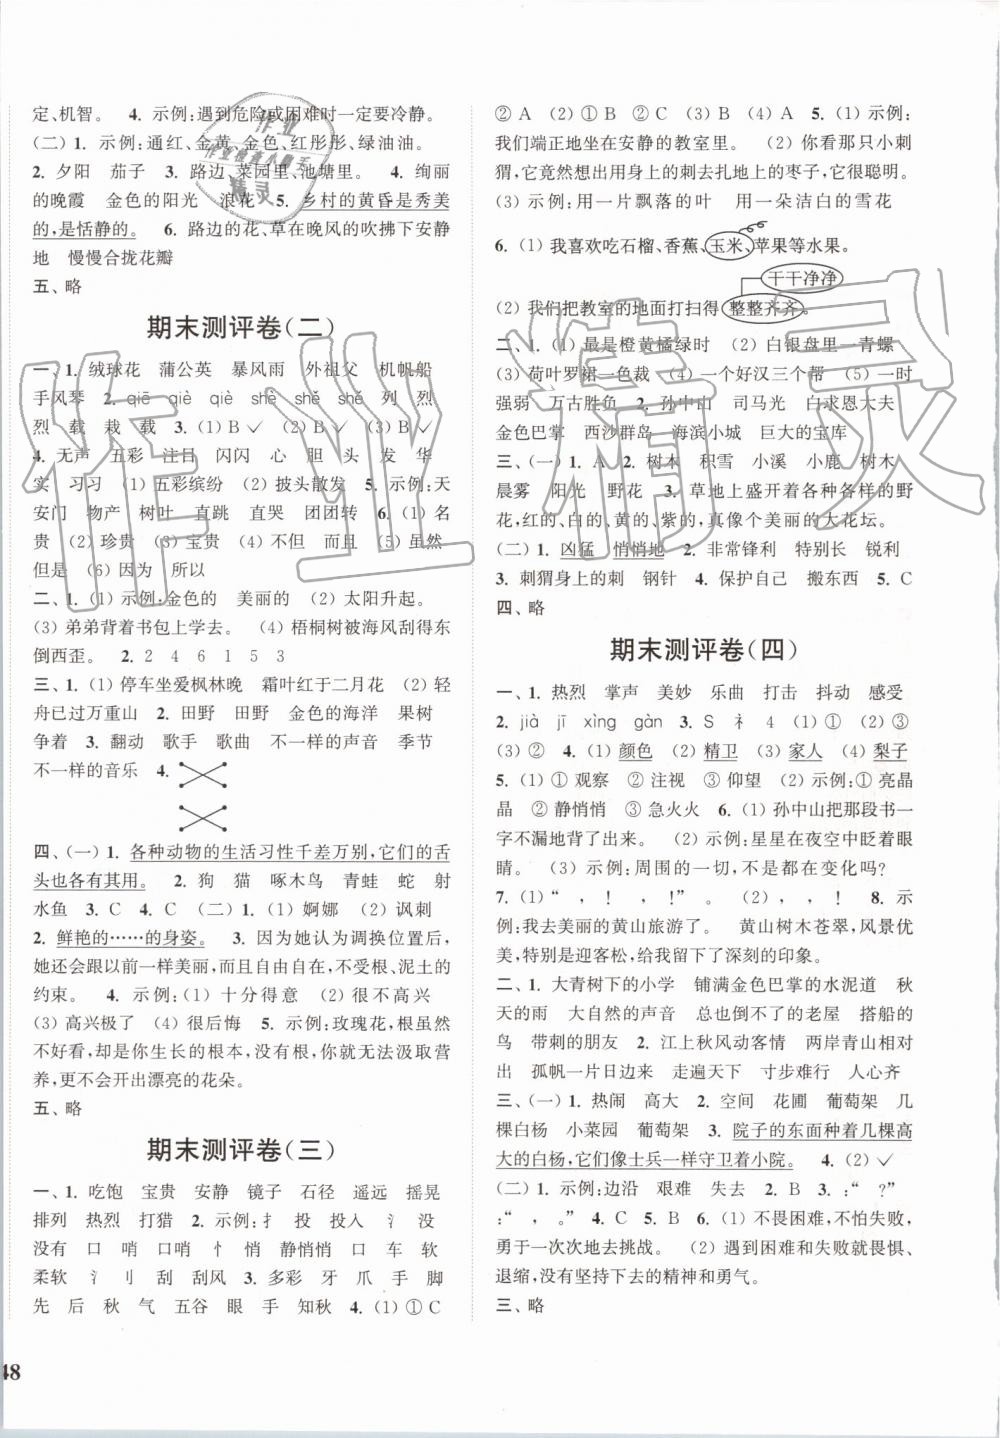 定、机智。 4. 示例:遇到危险或困难时一定要冷静。
(二) 1. 示例:通红、金黄 金色、红彤彤、绿油油。
2. 夕阳 茄子 3. 路边、菜园里、池塘里。 4. 绚丽
的晚霞 金色的阳光 浪花 5. 乡村的黄昏是秀美
的,是恬静的。 6. 路边的花、草在晚风的吹拂下安静
地 慢慢合拢花瓣
五、略
期末测评卷(二)
一、1. 绒球花 蒲公英 暴风雨 外祖父 机帆船
手风琴 2. qiē qiè qiè shè shě shě 列 烈
烈 载 栽 载 3. (1) B✓ (2) B✓ (3) B✓
4. 无声 五彩 注目 闪闪 心 胆 头 发 华
实 习习 (1) 五彩缤纷 (2) 披头散发 5. 示例:天
安门 物产 树叶 直跳 直哭 团团转 6. (1) 名
贵 (2) 珍贵 (3) 宝贵 (4) 不但 而且 (5) 虽然
但是 (6) 因为 所以
二、1. (1) 示例:金色的 美丽的 (2) 太阳升起。
(3) 弟弟背着书包上学去。 (4) 梧桐树被海风刮得东
倒西歪。 2. 2 4 6 1 5 3
三、1. (1) 停车坐爱枫林晚 霜叶红于二月花 (2) 轻
舟已过万重山 2. 田野 田野 金色的海洋 果树
争着 3. 翻动 歌手 歌曲 不一样的声音 季节
不一样的音乐 4.
四、(一) 1. 各种动物的生活习性千差万别,它们的舌
头也各有其用。 2. 狗 猫 啄木鸟 青蛙 蛇 射
水鱼 3. C 4. C (二) 1. (1) 婀娜 (2) 讽刺
2. 鲜艳的……的身姿。 3. 因为她认为调换位置后,
她还会跟以前一样美丽,而且没有根、枝、泥土的
约束。 4. 示例:(1) 十分得意 (2) 很不高兴
(3) 高兴极了 (4) 很后悔 5. 示例:玫瑰花,根虽然
不好看,却是你生长的根本,没有根,你就无法汲取营
养,更不会开出漂亮的花朵。
五、略
期末测评卷(三)
一、1. 吃饱 宝贵 安静 镜子 石径 遥远 摇晃
排列 热烈 打猎 2. 示例:扌 投 投入 氵 没
没有 口 哨 口哨 忄 悄 静悄悄 口 车 软
柔软 氵 刂 刮 刮风 3. 多彩 牙 爪 手 脚
先 后 秋 气 五谷 眼 手 知秋 4. (1) ① C
② A (2) ① B ② C (3) B (4) A 5. (1) 示例:
我们端正地坐在安静的教室里。 (2) 示例:小刺
猬,它竟然想出用身上的刺去扎地上的枣子,它很聪明。
(3) 示例:用一片飘落的叶 用一朵洁白的雪花
6. (1) 我喜欢吃石榴、香蕉、玉米、苹果等水果。
干干净净
(2) 我们把教室的地面打扫得整整齐齐。
二、1. (1) 最是橙黄橘绿时 (2) 白银盘里一青螺
(3) 荷叶罗裙一色裁 (4) 一个好汉三个帮 (5) 一时
强弱 万古胜负 2. 孙中山 司马光 白求恩大夫
金色巴掌 西沙群岛 海滨小城 巨大的宝库
三、(一) 1. A 2. 树木 积雪 小溪 小鹿 树木
晨雾 阳光 野花 3. 草地上盛开着各种各样的野
花,红的、白的、黄的、紫的,真像个美丽的大花坛。
(二) 1. 凶猛 悄悄地 2. 非常锋利 特别长 锐利
3. 刺猬身上的刺 钢针 4. 保护自己 搬东西 5. C
四、略
期末测评卷(四)
一、1. 热烈 掌声 美妙 乐曲 打击 抖动 感受
2. jià jī xìng gàn 3. S 礻 4 (1) ① (2) ③
(3) ② 4. (1) 颜色 (2) 精卫 (3) 家人 (4) 梨子
5. (1) ① 观察 ② 注视 ③ 仰望 (2) 示例:① 亮晶
晶 ② 静悄悄 ③ 急火火 6. (1) 孙中山把那段书一
字不漏地背了出来。 (2) 示例:星星在夜空中眨着眼
睛。 (3) 示例:周围的一切,不是都在变化吗?
7. (1)“ , ! , !”。 (2) , , ! 8. 示
例:我去美丽的黄山旅游了。 黄山树木苍翠,风景优
美,特别是迎客松,给我留下了深刻的印象。
二、1. 大青树下的小学 铺满金色巴掌的水泥道 秋
天的雨 大自然的声音 总也倒不了的老屋 搭船的
鸟 带刺的朋友 2. 江上秋风动客情 两岸青山相对
出 孤帆一片日边来 走遍天下 寸步难行 人心齐
三、(一) 1. 热闹 高大 2. 空间 花圃 葡萄架 几
棵白杨 小菜园 葡萄架 3. 院子的东面种着几棵高
大的白杨,它们像士兵一样守卫着小院。 4. (2) ✓
(二) 1. 示例:边沿 艰难 失去 2. B 3. :“ ?”
:“ , 。” 4. C 5. B 6. (1) 不畏困难,不怕失败,
勇于一次次地去挑战。 (2) 遇到困难与失败就畏惧、
退缩,没有坚持下去的精神和勇气。
三、略
48
作业
作业检查小助手
精灵
作业精灵